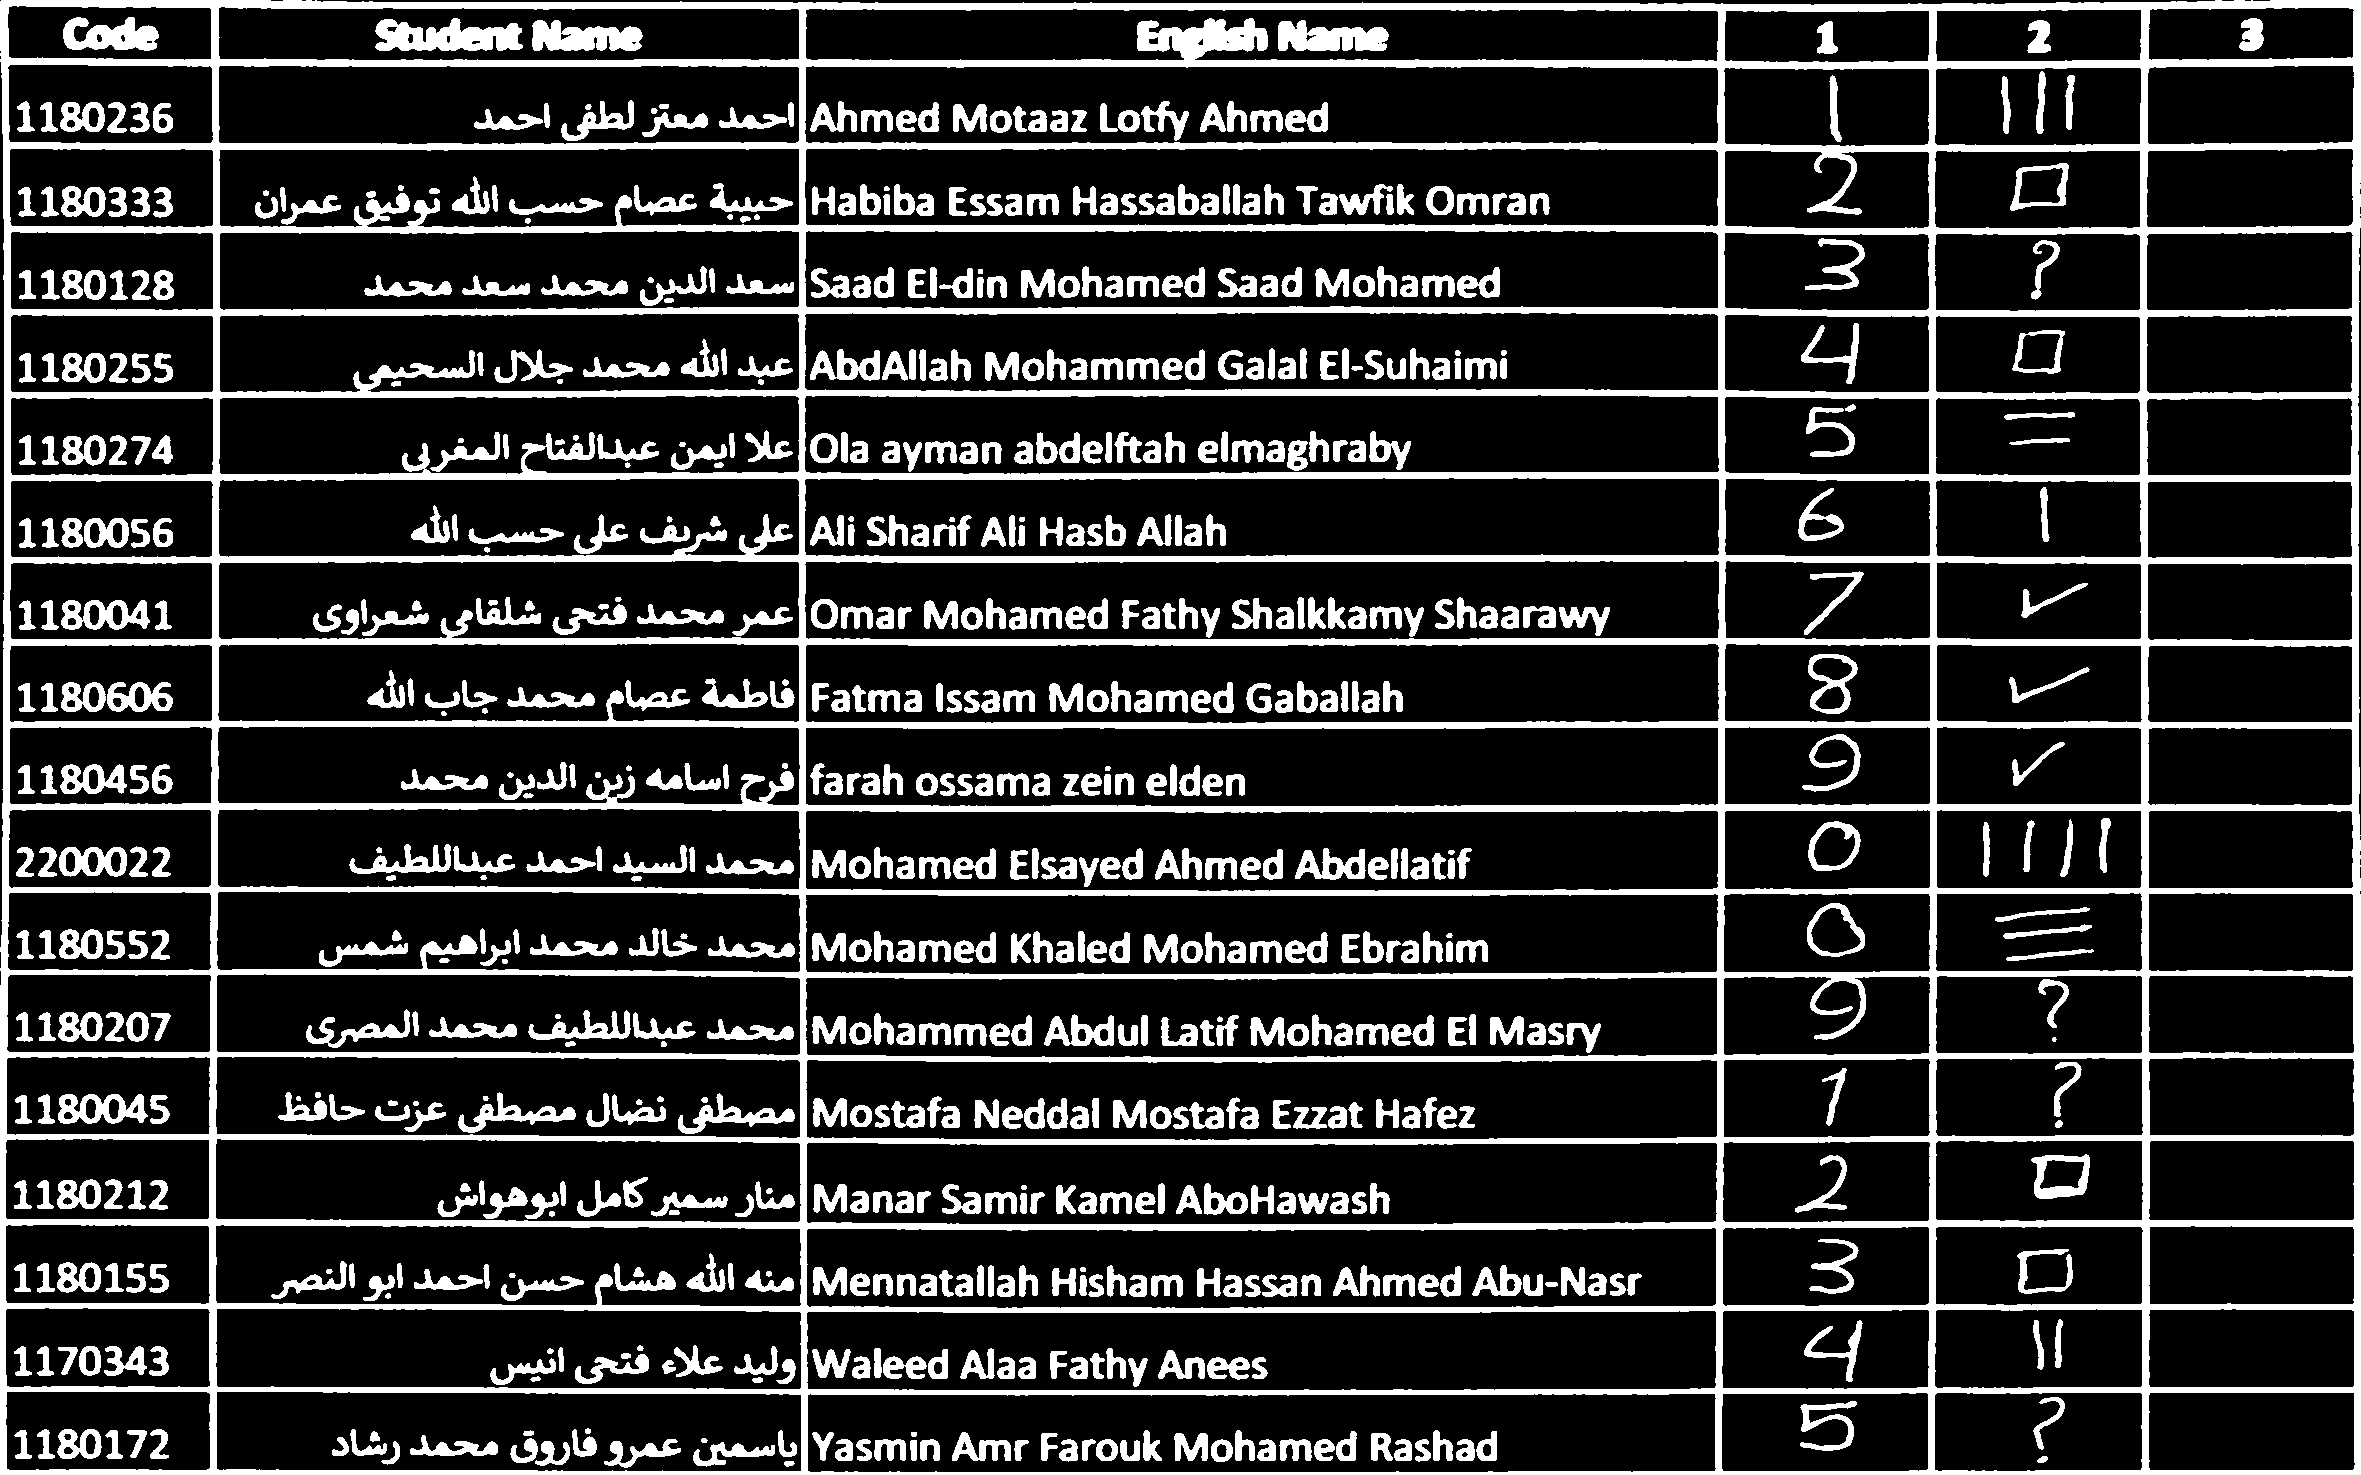 Code Student Name English Name 1 2 3
1180236 احمد معتز لطفى احمد Ahmed Motaaz Lotfy Ahmed 1 |||
1180333 حبيبة عصام حسب الله توفيق عمران Habiba Essam Hassaballah Tawfik Omran 2 □
1180128 سعد الدين محمد سعد محمد Saad El-din Mohamed Saad Mohamed 3 ?
1180255 عبد الله محمد جلال السحيمي AbdAllah Mohammed Galal El-Suhaimi 4 □
1180274 علا ايمن عبدالفتاح المغربى Ola ayman abdelftah elmaghraby 5 =
1180056 على شريف على حسب الله Ali Sharif Ali Hasb Allah 6 |
1180041 عمر محمد فتحى شلقامي شعراوى Omar Mohamed Fathy Shalkkamy Shaarawy 7 ✓
1180606 فاطمة عصام محمد جاب الله Fatma Issam Mohamed Gaballah 8 ✓
1180456 فرح اسامه زين الدين محمد farah ossama zein elden 9 ✓
2200022 محمد السيد احمد عبداللطيف Mohamed Elsayed Ahmed Abdellatif 0 ||||
1180552 محمد خالد محمد ابراهيم شمس Mohamed Khaled Mohamed Ebrahim 0 ≡
1180207 محمد عبداللطيف محمد المصرى Mohammed Abdul Latif Mohamed El Masry 9 ?
1180045 مصطفى نضال مصطفى عزت حافظ Mostafa Neddal Mostafa Ezzat Hafez 1 ?
1180212 منار سمير كامل ابوهواش Manar Samir Kamel AboHawash 2 □
1180155 منه الله هشام حسن احمد ابو النصر Mennatallah Hisham Hassan Ahmed Abu-Nasr 3 □
1170343 وليد علاء فتحى انيس Waleed Alaa Fathy Anees 4 ||
1180172 ياسمين عمرو فاروق محمد رشاد Yasmin Amr Farouk Mohamed Rashad 5 ?